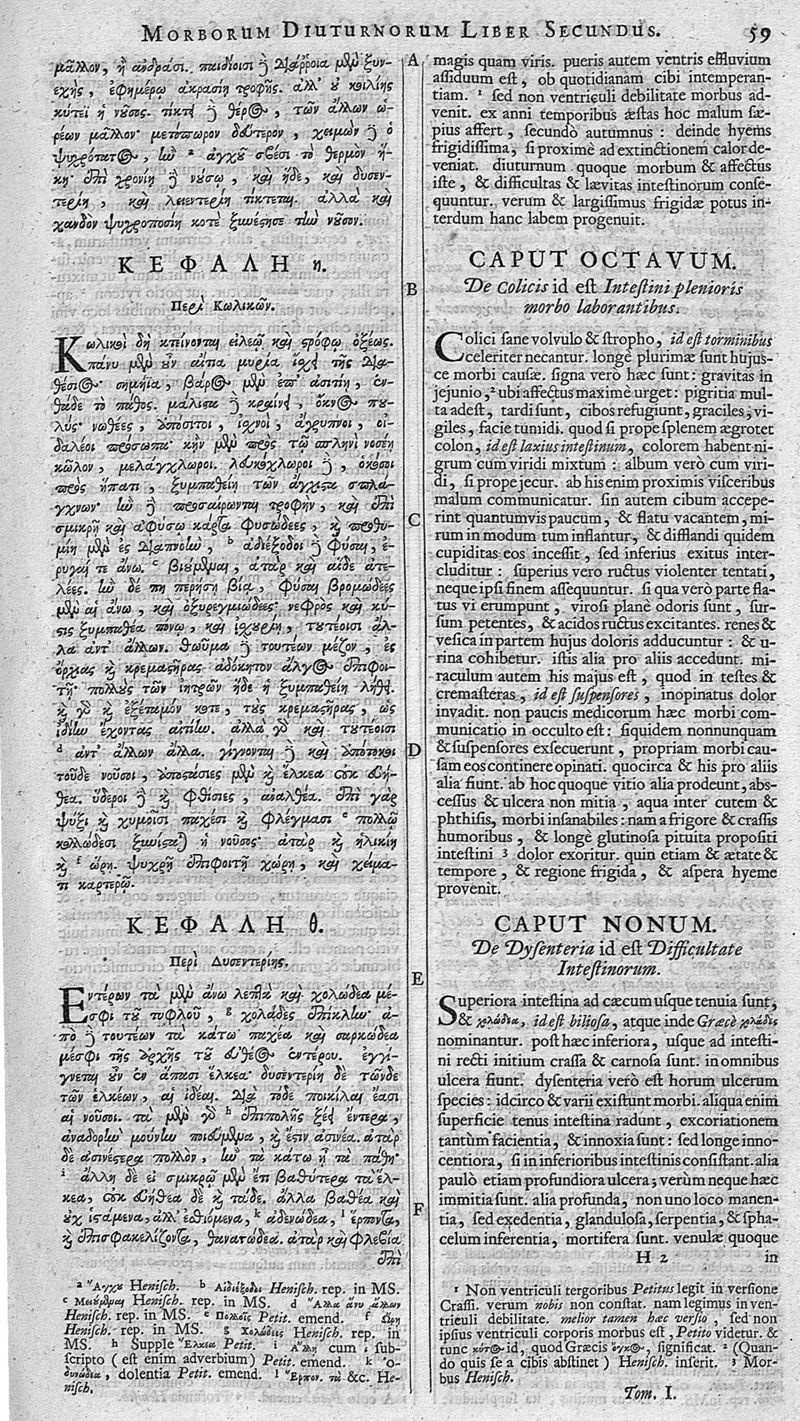 MORBORUM DIUTURNORUM LIBER SECUNDUS. 59
μᾶλλον, ἢ ἀνδράσι. παιδίοισι δὲ διάῤῥοια μὲν ξυν-
εχὴς, ἐφημέρῳ ἀκρασίῃ τροφῆς. ἀλλ' οὐ κοιλίης
τίκτει δὲ θέρος, τῶν ἄλλων ὡ-
ρέων μᾶλλον· μετόπωρον δεύτερον, χειμὼν δὲ ὁ
ψυχρότατος, ἢν ² ἄγχου σβέσι τὸ θερμὸν ἥ-
κῃ· ἐπὶ χρονίῃ δὲ νούσῳ, καὶ ἥδε, καὶ δυσεν-
τερίη, καὶ λειεντερίη τίκτεται. ἀλλὰ καὶ
χανδὸν ψυχροποσίη κοτὲ ξυνέστησε τὴν νοῦσον.
ΚΕΦΑΛΗ η.
Περὶ Κωλικῶν.
Κωλικοὶ δὴ κτείνονται εἰλεῷ καὶ στρόφῳ ὀξέως.
πάνυ μὲν οὖν αἴτια μυρία ἴσχει τῆς δια-
θέσιος· σημήια, βάρος μὲν ἐπ' ἀσιτίῃ, ἐν-
θάδε τὸ πάθος. μάλιστα δὲ κραίνει, ὄκνος που-
λύς· νωθέες, ἀπόσιτοι, ἰχνοὶ, ἄγρυπνοι, οἰ-
δαλέοι πρόσωπα· κἢν μὲν πρὸς τῷ σπληνὶ νοσέῃ
κῶλον, μελάγχλωροι. λευκόχλωροι δὲ, ὁκόσοι
πρὸς ἥπατι, ξυμπαθείῃ τῶν ἄγχιστα σπλά-
γχνων· ἢν δὲ προσαίρωνται τροφὴν, καὶ ἐπὶ
σμικρῇ καὶ ἀφύσῳ κάρτα φυσώδεες, καὶ προθυ-
μίη μὲν ἐς διαπνοὴν, ᵇ ἀδιέξοδοι δὲ φῦσαι, ἐ-
ρυγαί τε ἄνω. ᶜ βιεύμεναι, ἀτὰρ καὶ αἵδε ἀτε-
λέες. ἢν δέ πη περήσῃ βίᾳ, φῦσαι βρομώδεες
μὲν αἱ ἄνω, καὶ ὀξυρεγμιώδεες· νεφρὸς καὶ κύ-
στις ξυμπαθέα πόνῳ, καὶ ἰσχουρίῃ, τουτέοισι ἄλ-
λα ἀντ' ἄλλων. θωῦμα δὲ τουτέων μέζον, ἐς
ὄρχιας καὶ κρεμαστῆρας ἀδόκητον ἄλγος ἐπιφοι-
τῇ· πολλοὺς τῶν ἰητρῶν ἥδε ἡ ξυμπαθείη λήθει.
καὶ γὰρ καὶ ἐξέταμόν κοτε, τοὺς κρεμαστῆρας, ὡς
ἰδίην ἔχοντας αἰτίην. ἀλλὰ γὰρ καὶ τουτέοισι
ᵈ ἀντ' ἄλλων ἄλλα. γίγνονται δὲ καὶ ἀπότοκοι
τοῦδε νοῦσοι, ἀποστάσιες μὲν καὶ ἕλκεα οὐκ εὐή-
θεα. ὕδεροι δὲ καὶ φθίσιες, ἀναλθέα. ἐπὶ γὰρ
ψύξι καὶ χυμοῖσι παχέσι καὶ φλέγμασι ᵉ πολλῷ
κολλώδεσι ξυνίσταται ἡ νοῦσος. ἀτὰρ καὶ ἡλικίῃ
καὶ ᶠ ὥρῃ. ψυχρῇ ἐπιφοιτῇ χώρῃ, καὶ χείμα-
τι καρτερῷ.
ΚΕΦΑΛΗ θ.
Περὶ Δυσεντερίης.
Εντέρων τὰ μὲν ἄνω λεπτὰ καὶ χολώδεα μέ-
σφι τοῦ τυφλοῦ, ᵍ χολάδες ἐπίκλην· ἀ-
πὸ δὲ τουτέων τὰ κάτω παχέα καὶ σαρκώδεα
μέσφι τῆς ἀρχῆς τοῦ εὐθέος ἐντέρου. ἐγγί-
γνεται οὖν ἐν ἅπασι ἕλκεα· δυσεντερίη δὲ τῶνδε
τῶν ἑλκέων, αἱ ἰδέαι. διὰ τόδε ποικίλαι ἔασι
αἱ νοῦσοι. τὰ μὲν γὰρ ʰ ἐπιπολῆς ξέει ἔντερα,
ἀναδορὴν μοῦνην ποιεύμενα, καὶ ἔστιν ἀσινέα. ἀτὰρ
δὲ ἀσινέστερα πολλὸν, ἢν τὰ κάτω ᾖ τὰ πάθη·
ⁱ ἄλλη δὲ εἰ σμικρῷ μὲν ἔτι βαθύτερα τὰ ἕλ-
κεα, οὐκ εὐήθεα δὲ καὶ τάδε. ἄλλα βαθέα καὶ
οὐχ ἱστάμενα, ἀλλ' ἐσθιόμενα, ᵏ ἀδενώδεα, ˡ ἕρποντα,
καὶ ἐπισφακελίζοντα, θανατώδεα. ἀτὰρ καὶ φλέβια
ἐπὶ
ᵃ Ἄγχυ Henisch. ᵇ Αἰδιέξοδοι Henisch. rep. in MS.
ᶜ Μειεύμεναι Henisch. rep. in MS. ᵈ Ἄλλα ἄνυ ἄλλων
Henisch. rep. in MS. ᵉ Πολλοῖς Petit. emend. ᶠ Εὔρη
Henisch. rep. in MS. ᵍ Χολώδεις Henisch. rep. in
MS. ʰ Supple Ἕλκεα Petit. ⁱ Ἄλλῃ cum ι sub-
scripto (est enim adverbium) Petit. emend. ᵏ Ὀ-
δυνώδεα, dolentia Petit. emend. ˡ Ἕρπον. τὰ &c. He-
nisch,
A
B
C
D
E
F
magis quam viris. pueris autem ventris effluvium
assiduum est, ob quotidianam cibi intemperan-
tiam. ¹ sed non ventriculi debilitate morbus ad-
venit. ex anni temporibus æstas hoc malum sæ-
pius affert, secundò autumnus: deinde hyems
frigidissima, si proximè ad extinctionem calor de-
veniat. diuturnum quoque morbum & affectus
iste, & difficultas & lævitas intestinorum conse-
quuntur. verum & largissimus frigidæ potus in-
terdum hanc labem progenuit.
CAPUT OCTAVUM.
De Colicis id est Intestini plenioris
morbo laborantibus.
Colici sane volvulo & stropho, id est torminibus
celeriter necantur. longè plurimæ sunt hujus-
ce morbi causæ. signa verò hæc sunt: gravitas in
jejunio,² ubi affectus maximè urget: pigritia mul-
ta adest, tardi sunt, cibos refugiunt, graciles, vi-
giles, facie tumidi. quod si prope splenem ægrotet
colon, id est laxius intestinum, colorem habent ni-
grum cum viridi mixtum: album verò cum viri-
di, si prope jecur. ab his enim proximis visceribus
malum communicatur. sin autem cibum accepe-
rint quantumvis paucum, & flatu vacantem, mi-
rum in modum tum inflantur, & difflandi quidem
cupiditas eos incessit, sed inferius exitus inter-
cluditur: superius vero ructus violenter tentati,
neque ipsi finem assequuntur. si qua verò parte fla-
tus vi erumpunt, virosi planè odoris sunt, sur-
sum petentes, & acidos ructus excitantes. renes &
vesica in partem hujus doloris adducuntur: & u-
rina cohibetur. istis alia pro aliis accedunt. mi-
raculum autem his majus est, quod in testes &
cremasteras, id est suspensores, inopinatus dolor
invadit. non paucis medicorum hæc morbi com-
municatio in occulto est: siquidem nonnunquam
& suspensores exsecuerunt, propriam morbi cau-
sam eos continere opinati. quocirca & his pro aliis
alia fiunt. ab hoc quoque vitio alia prodeunt, abs-
cessus & ulcera non mitia, aqua inter cutem &
phthisis, morbi insanabiles: nam a frigore & crassis
humoribus, & longè glutinosa pituita propositi
intestini ³ dolor exoritur. quin etiam & ætate &
tempore, & regione frigida, & aspera hyeme
provenit.
CAPUT NONUM.
De Dysenteria id est Difficultate
Intestinorum.
Superiora intestina ad cæcum usque tenuia sunt,
& χολώδεα, id est biliosa, atque inde Græcè χολάδες
nominantur. post hæc inferiora, usque ad intesti-
ni recti initium crassa & carnosa sunt. in omnibus
ulcera fiunt. dysenteria verò est horum ulcerum
species: idcirco & varii existunt morbi. aliqua enim
superficie tenus intestina radunt, excoriationem
tantùm facientia, & innoxia sunt: sed longe inno-
centiora, si in inferioribus intestinis consistant. alia
paulò etiam profundiora ulcera; verùm neque hæc
immitia sunt. alia profunda, non uno loco manen-
tia, sed exedentia, glandulosa, serpentia, & spha-
celum inferentia, mortifera sunt. venulæ quoque
H 2 in
¹ Non ventriculi tergoribus Petitus legit in versione
Crassi. verum nobis non constat. nam legimus in ven-
triculi debilitate. melior tamen hæc versio, sed non
ipsius ventriculi corporis morbus est, Petito videtur. &
tunc κύτος id, quod Græcis ὄγκος, significat. ² (Quan-
do quis se a cibis abstinet) Henisch. inserit. ³ Mor-
bus Henisch.
Tom. I.